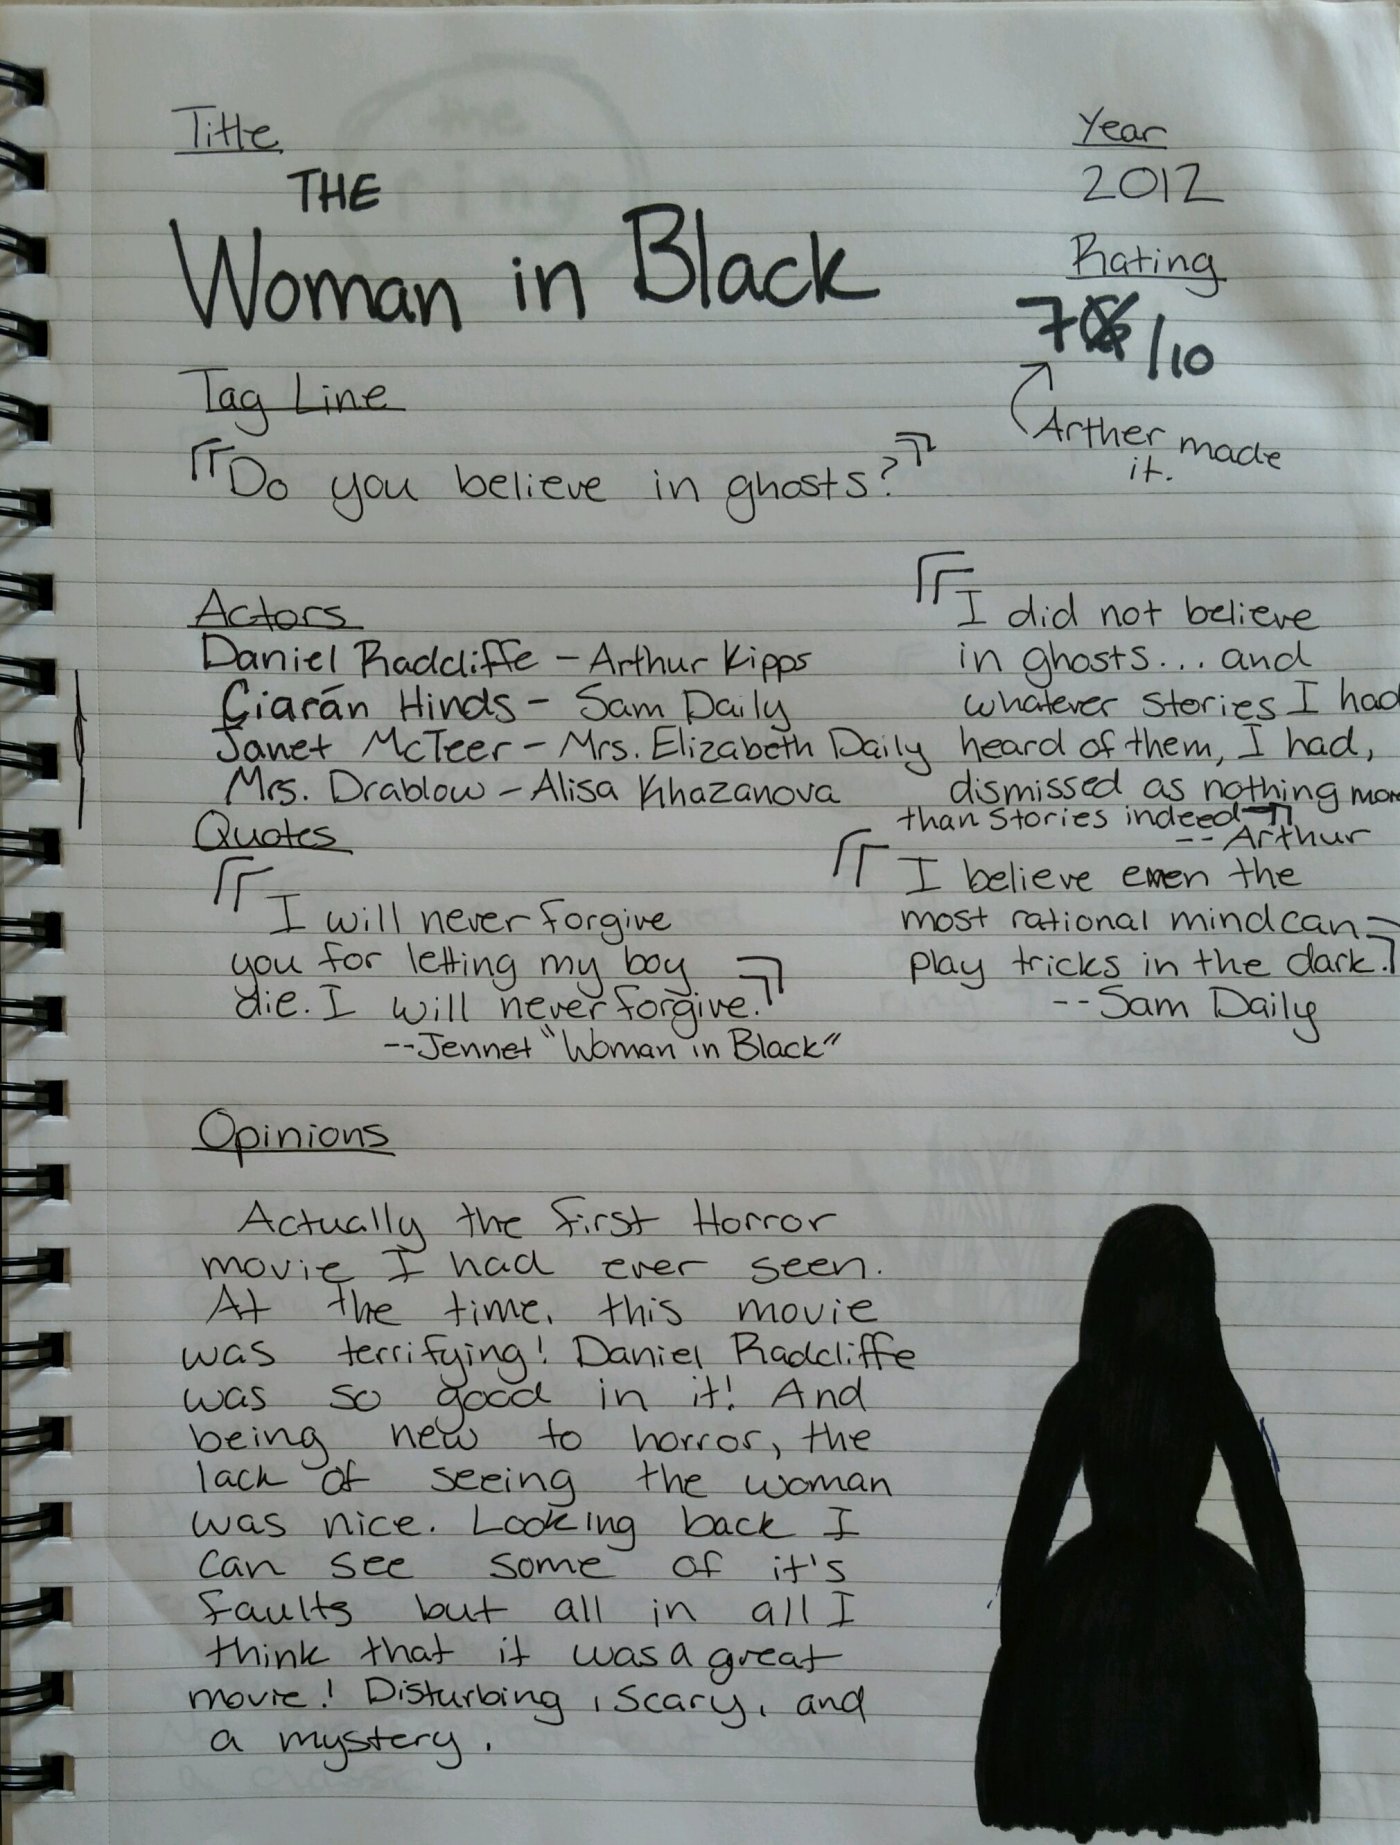 Title
THE
Woman in Black
Year
2012
Rating
7/10
Arther made
it.
Tag Line
"Do you believe in ghosts?"
Actors
Daniel Radcliffe - Arthur Kipps
Ciarán Hinds - Sam Daily
Janet McTeer - Mrs. Elizabeth Daily
Mrs. Drablow - Alisa Khazanova
"I did not believe
in ghosts... and
whatever stories I had
heard of them, I had,
dismissed as nothing mor
than stories indeed"
-- Arthur
Quotes
"I will never forgive
you for letting my boy
die. I will never forgive."
--Jennet "Woman in Black"
"I believe even the
most rational mind can
play tricks in the dark."
--Sam Daily
Opinions
Actually the first Horror
movie I had ever seen.
At the time, this movie
was terrifying! Daniel Radcliffe
was so good in it! And
being new to horror, the
lack of seeing the woman
was nice. Looking back I
can see some of it's
faults but all in all I
think that it was a great
movie! Disturbing, scary, and
a mystery.